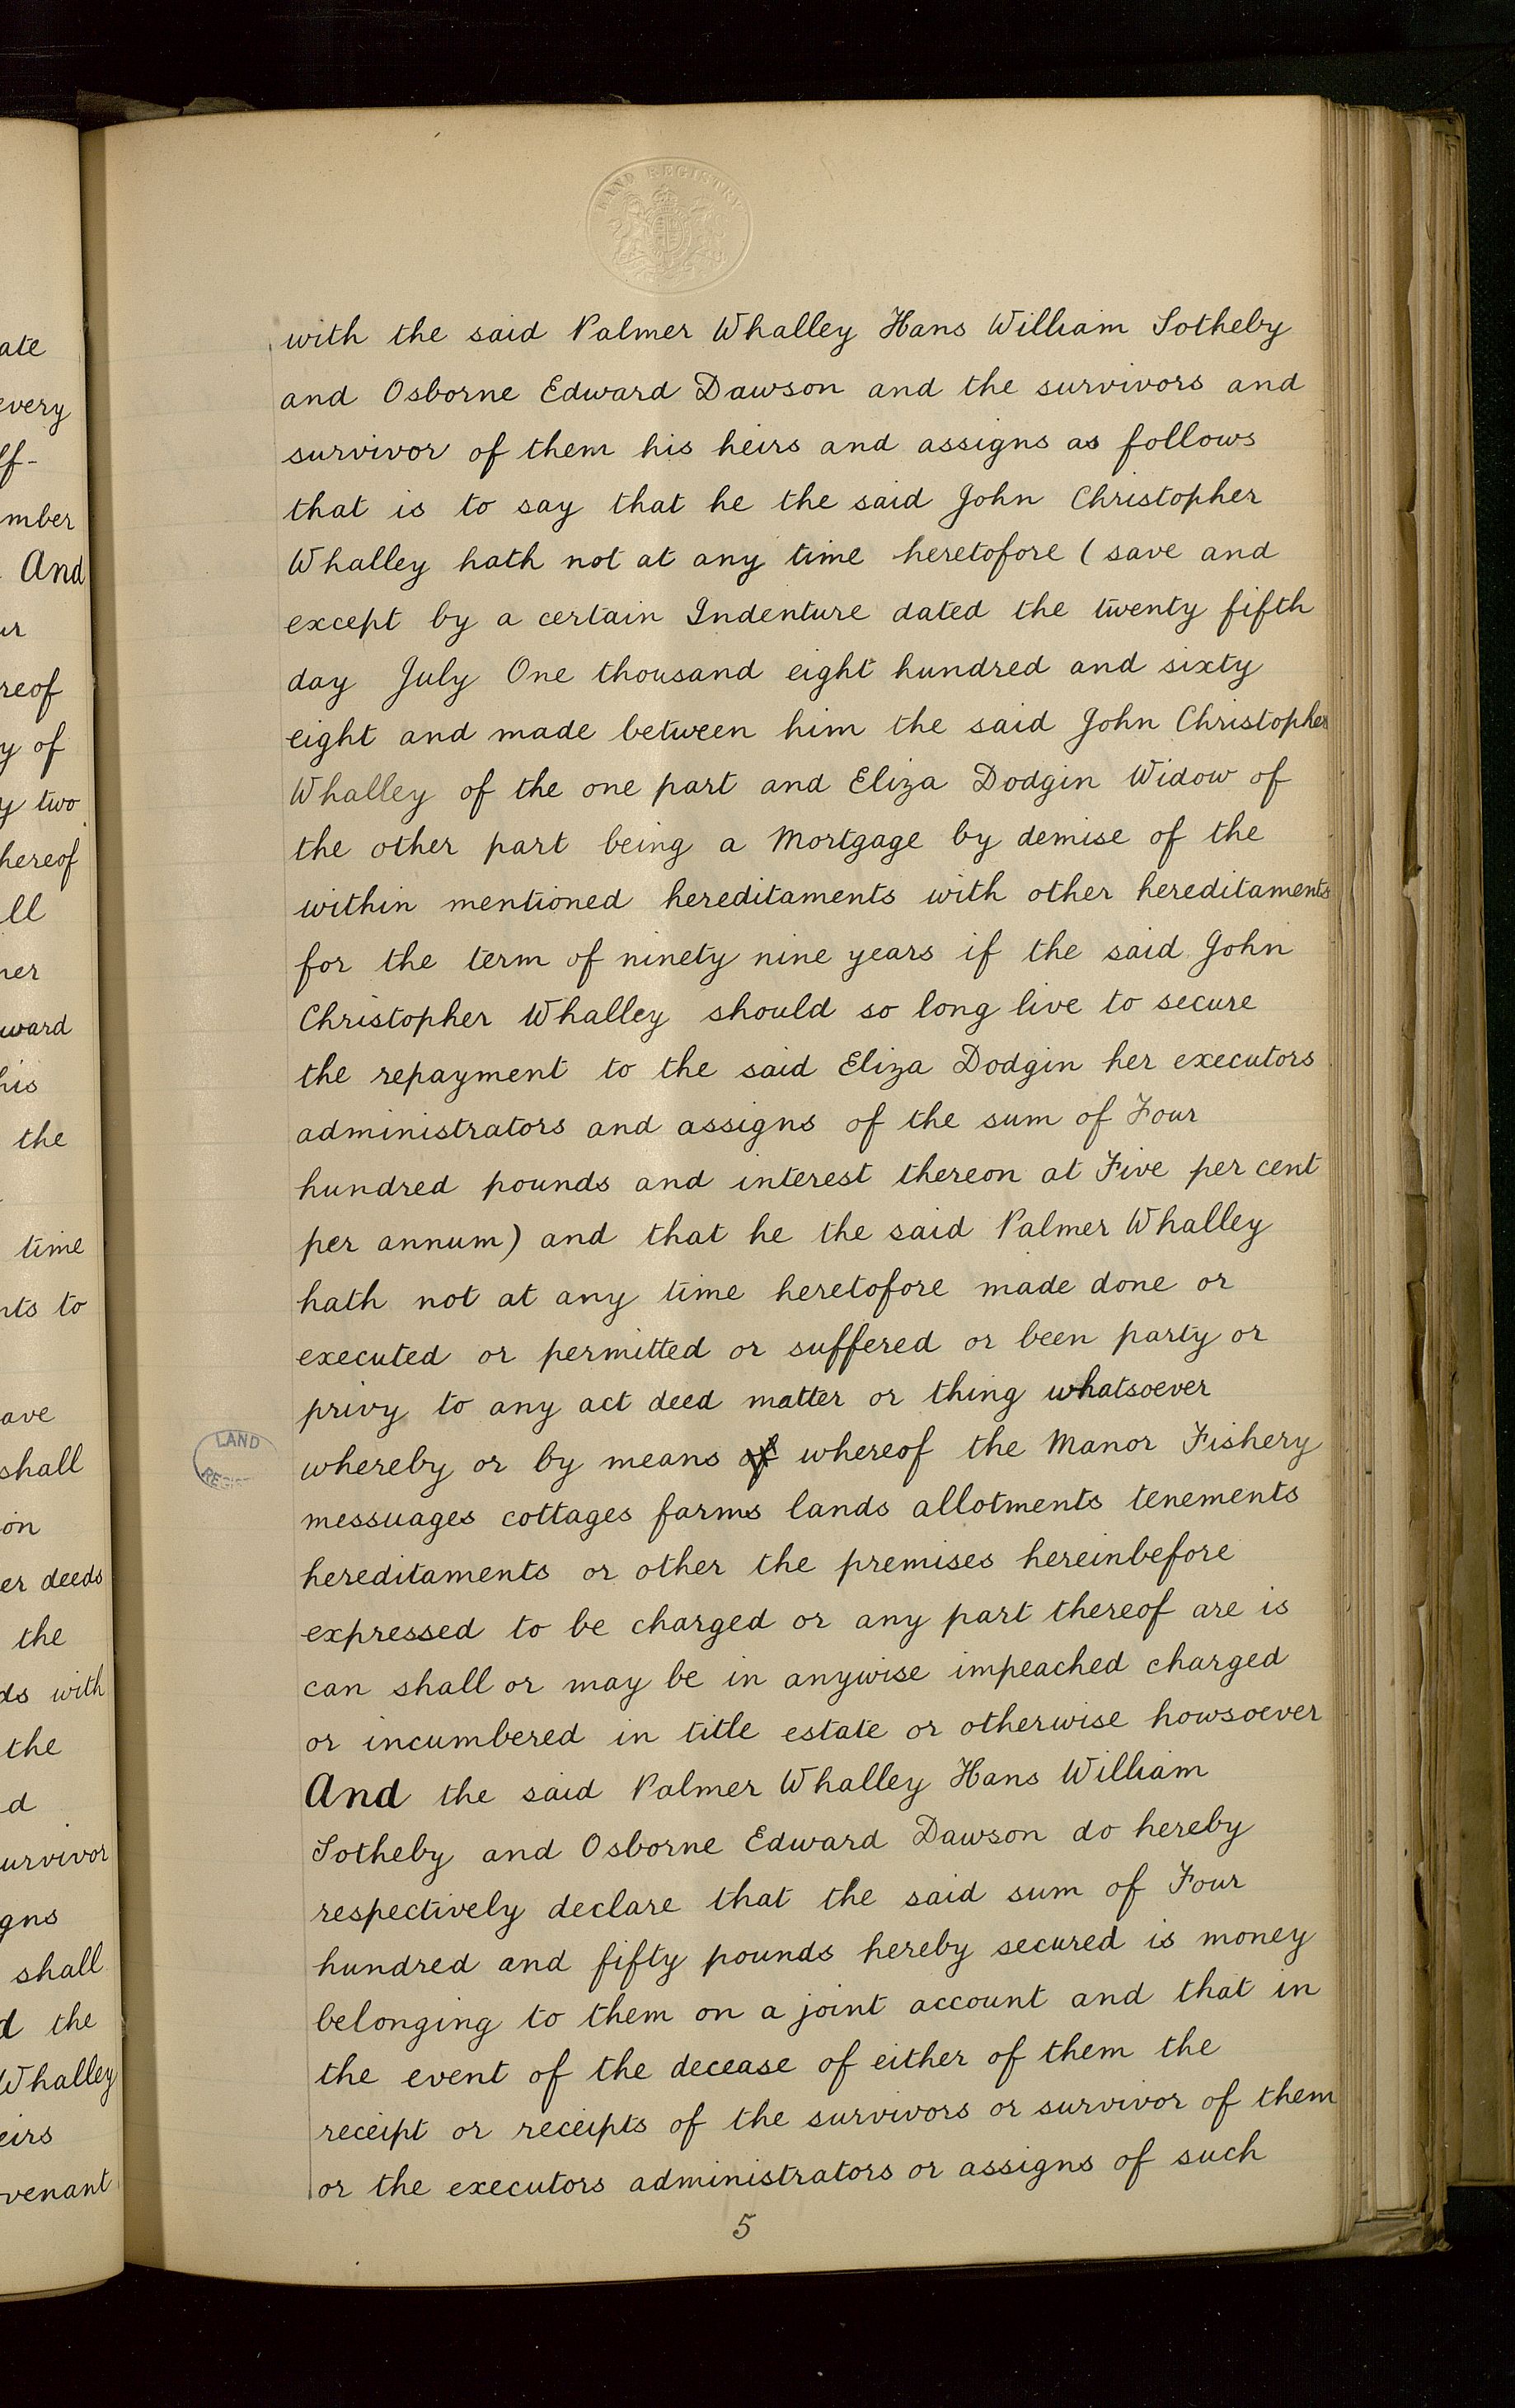 LAND REGISTRY
with the said Palmer Whalley Hans William Sotheby
and Osborne Edward Dawson and the survivors and
survivor of them his heirs and assigns as follows
that is to say that he the said John Christopher
Whalley hath not at any time heretofore (save and
except by a certain Indenture dated the twenty fifth
day July One thousand eight hundred and sixty
eight and made between him the said John Christopher
Whalley of the one part and Eliza Dodgin Widow of
the other part being a Mortgage by demise of the
within mentioned hereditaments with other hereditaments
for the term of ninety nine years if the said John
Christopher Whalley should so long live to secure
the repayment to the said Eliza Dodgin her executors
administrators and assigns of the sum of Four
hundred pounds and interest thereon at Five per cent
per annum) and that he the said Palmer Whalley
hath not at any time heretofore made done or
executed or permitted or suffered or been party or
privy to any act deed matter or thing whatsoever
whereby or by means of whereof the Manor Fishery
messuages cottages farms lands allotments tenements
hereditaments or other the premises hereinbefore
expressed to be charged or any part thereof are is
can shall or may be in anywise impeached charged
or incumbered in title estate or otherwise howsoever
And the said Palmer Whalley Hans William
Sotheby and Osborne Edward Dawson do hereby
respectively declare that the said sum of Four
hundred and fifty pounds hereby secured is money
belonging to them on a joint account and that in
the event of the decease of either of them the
receipt or receipts of the survivors or survivor of them
or the executors administrators or assigns of such
5
LAND
every
And
y of
two
the
time
to
shall
on
deeds
the
with
the
shall
the
Whalley